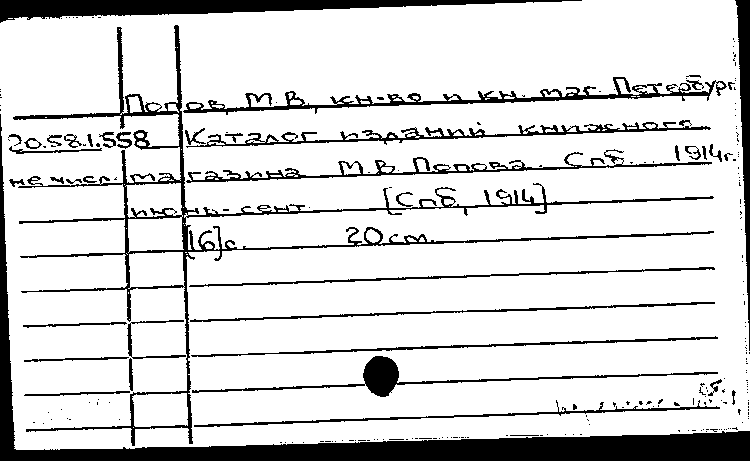 Попов, М.В., кн-во и кн. маг. Петербург.
20.58.1.558 Каталог изданий книжного
не числ. магазина М.В. Попова. Спб. 1914г.
июнь-сент. [Спб, 1914].
[16]с. 20 см.